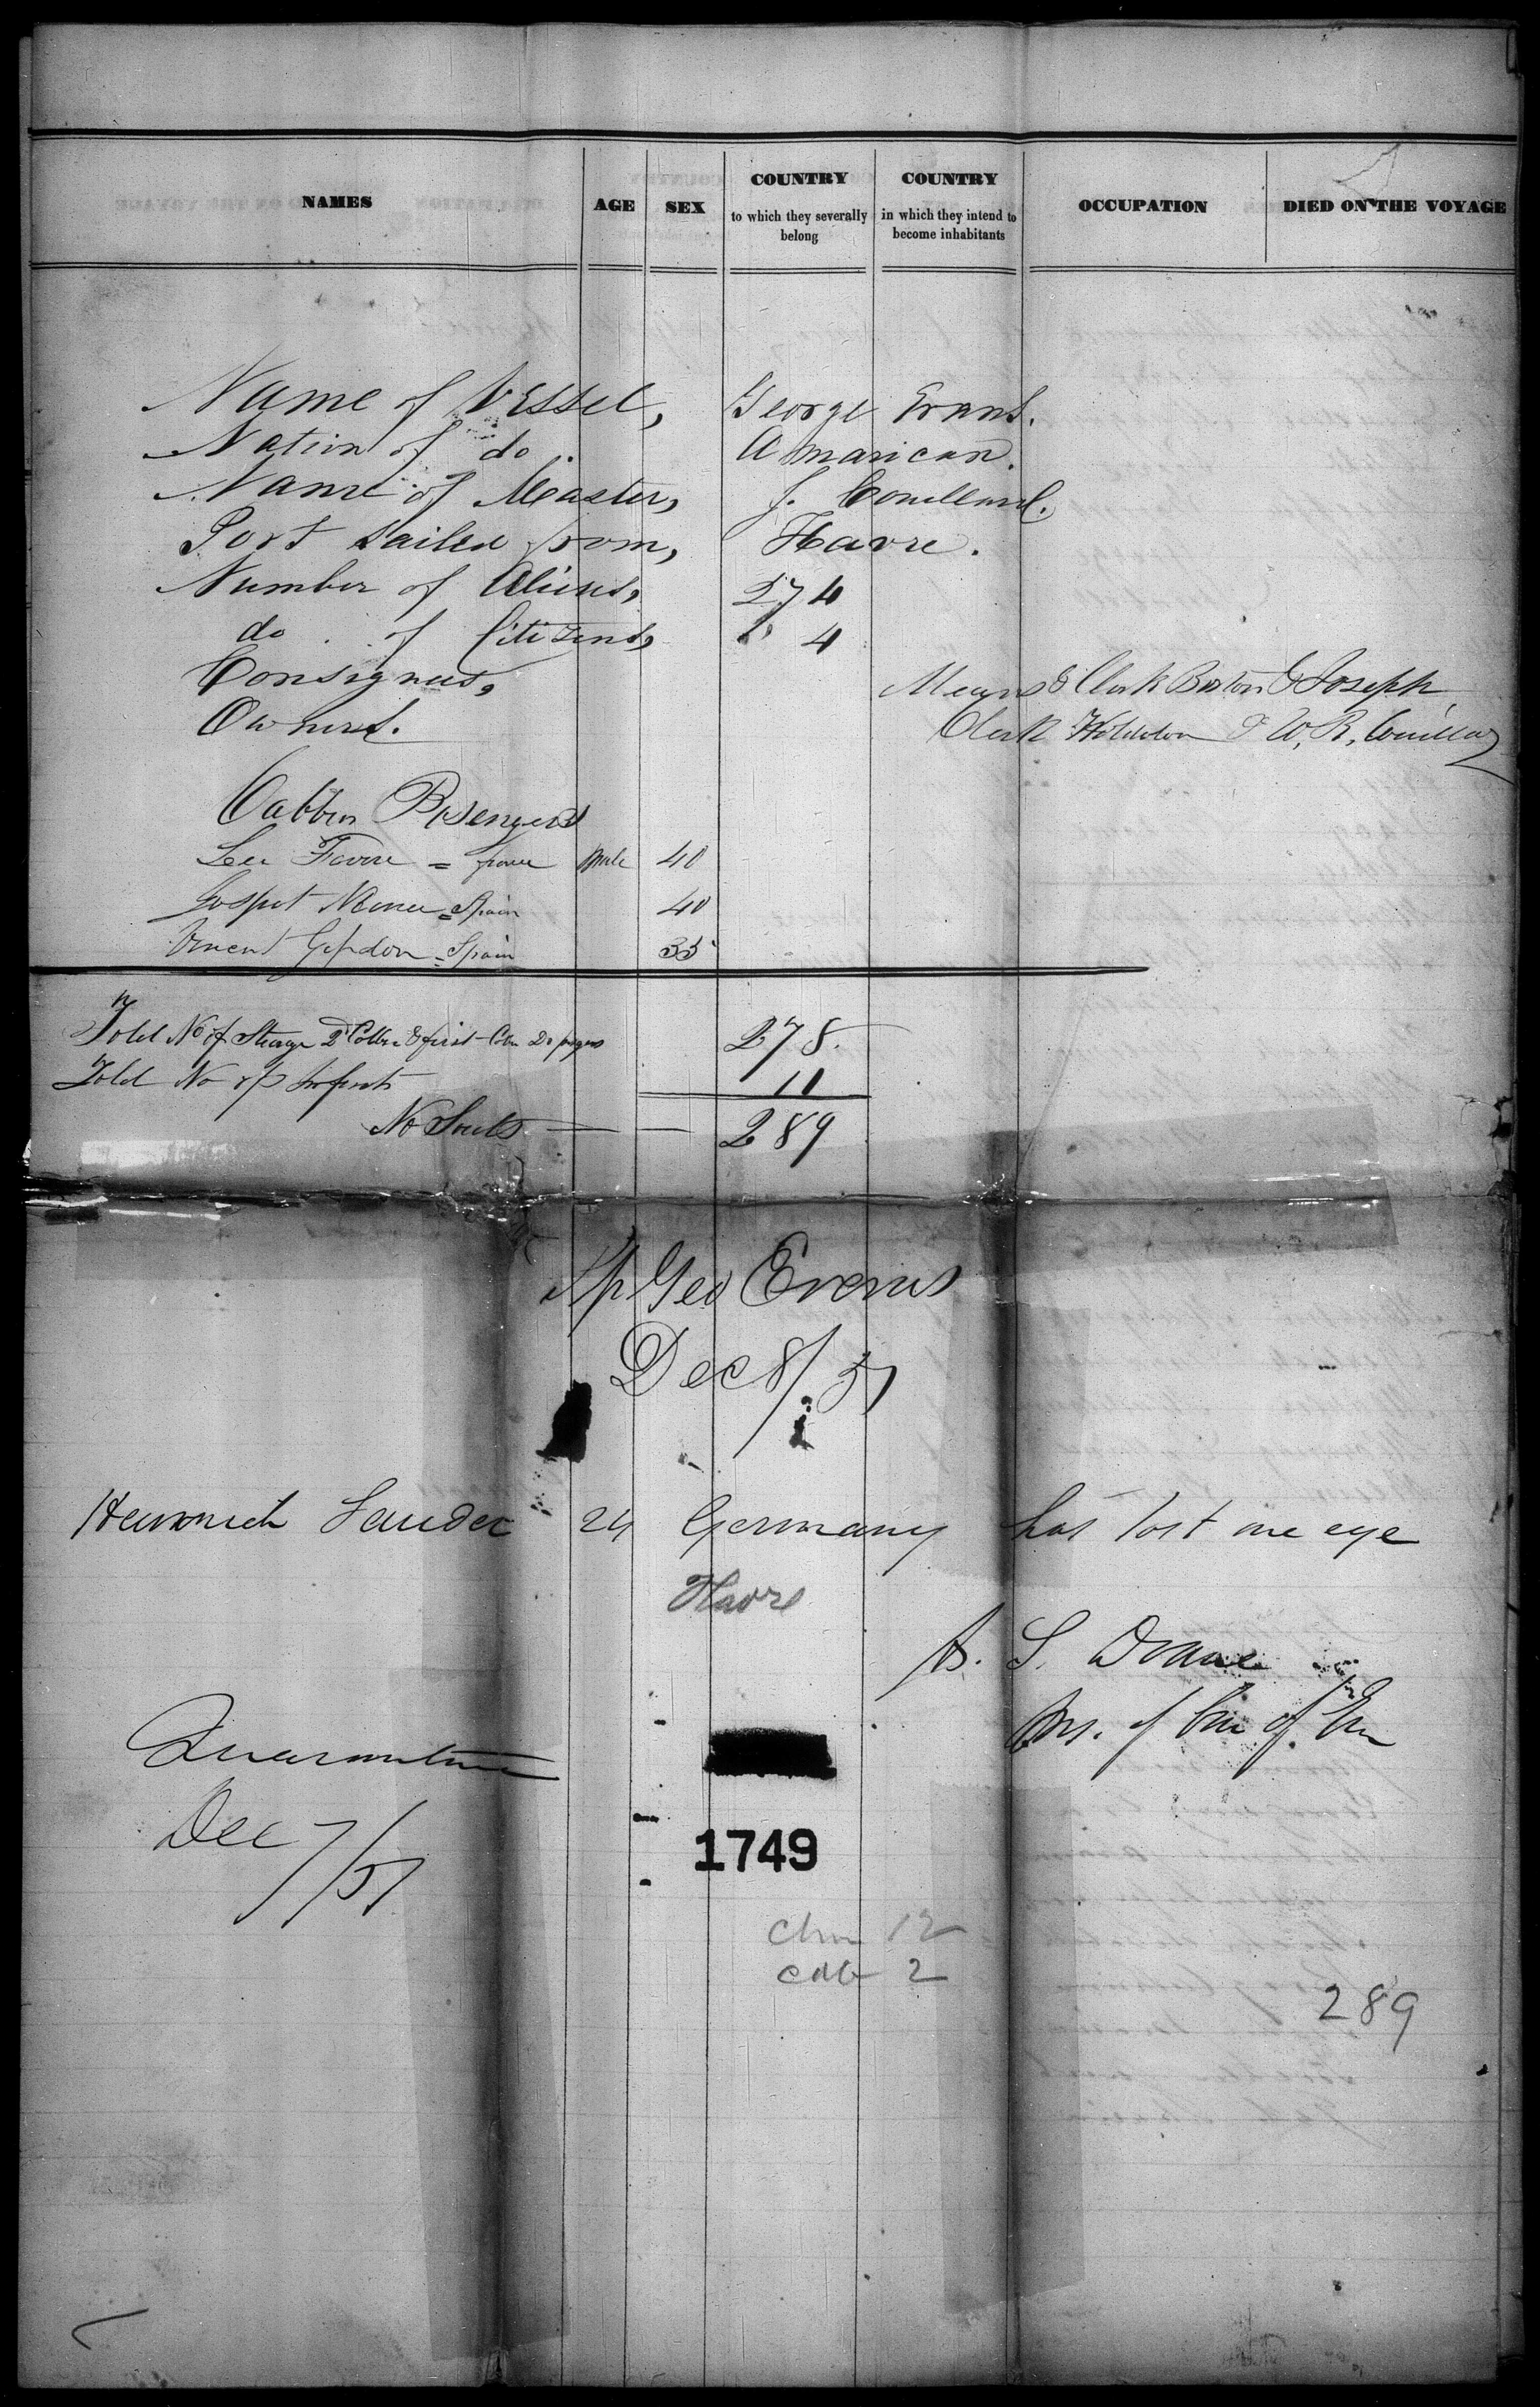 NAMES AGE SEX COUNTRY to which they severally belong COUNTRY in which they intend to become inhabitants OCCUPATION DIED ON THE VOYAGE
Name of Vessel, George Evans.
Nation of do. Amarican.
Name of Master, J. Couillard.
Port Sailed from, Havre.
Number of Aliens, 274
do. of Citizens, 4
Consignees, Means & Clark Boston & Joseph
Owners. Clark W. R. Couillard
Cabbin
Favre = Male 40
= Spain 40
Vincent = Spain 35
Told No of Sterage 2d & first 278.
Told No of Infants 11
No Souls 289
Sp Geo Evans
Dec 8/51
Heinrich Sauder 24 Germany has lost one eye
Havre
A. S. Doane
Quarantine
Dec 7/51
1749
12
2
289